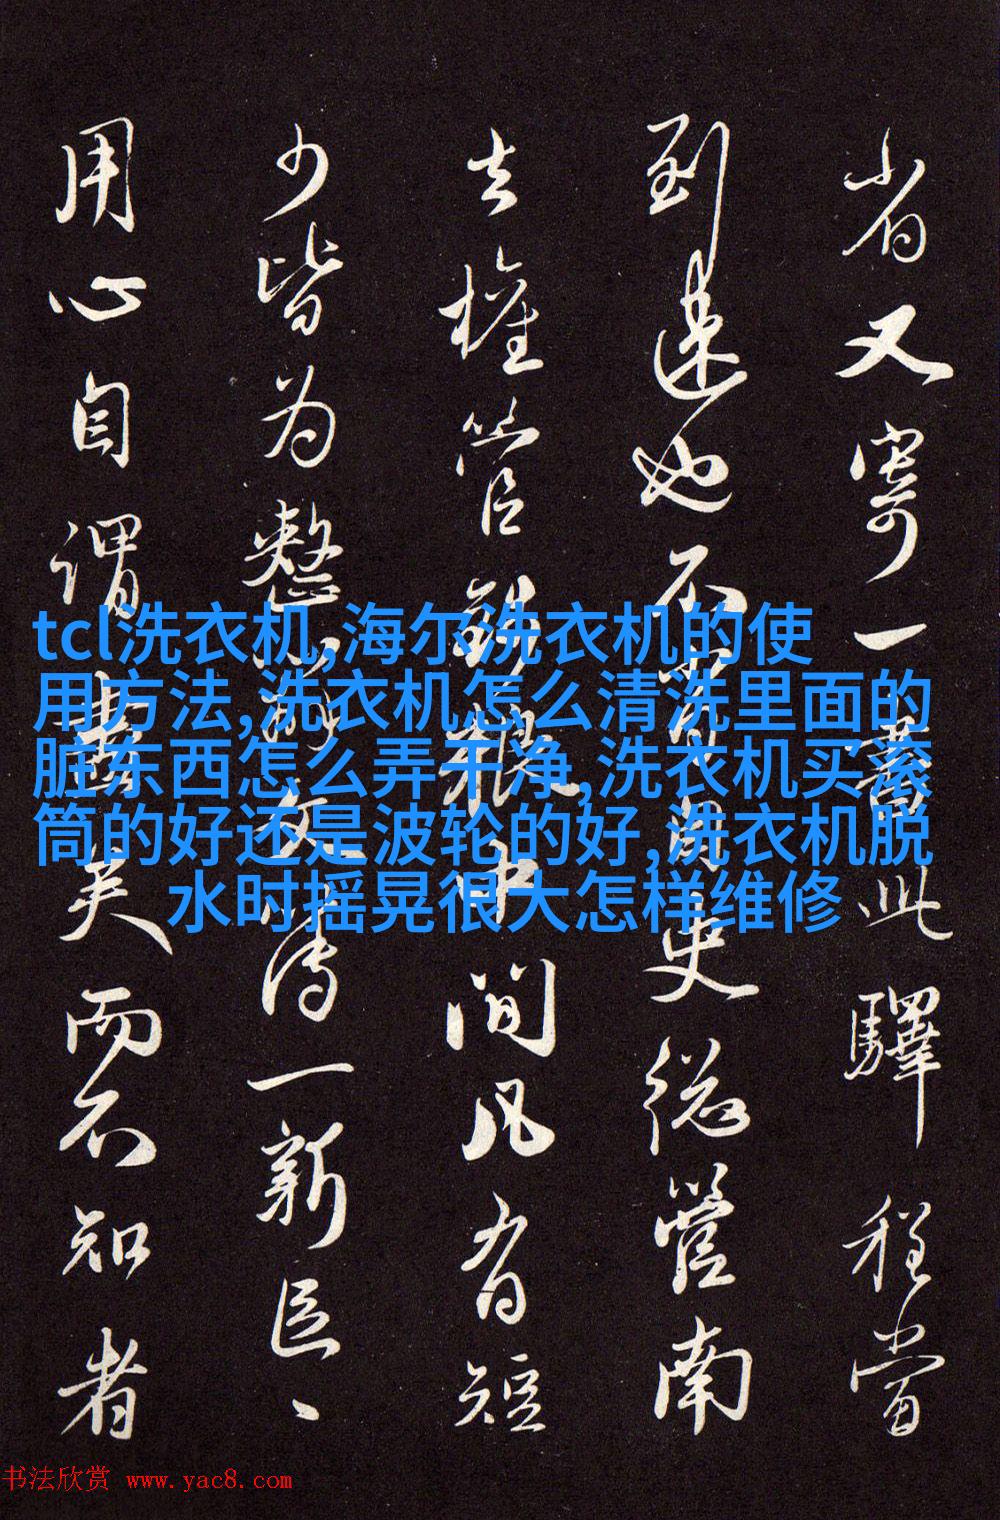 省又寄一書此驛程當
到速也不审自史總管南
去權管銷粮中間凡有短
少皆为整齊文簿一新臣、
用心自谓盡矣而不知者
tcl洗衣机,海尔洗衣机的使
用方法,洗衣机怎么清洗里面的
脏东西怎么弄干净,洗衣机买滚
筒的好还是波轮的好,洗衣机脱
水时摇晃很大怎样维修
书法欣赏 www.yac8.com